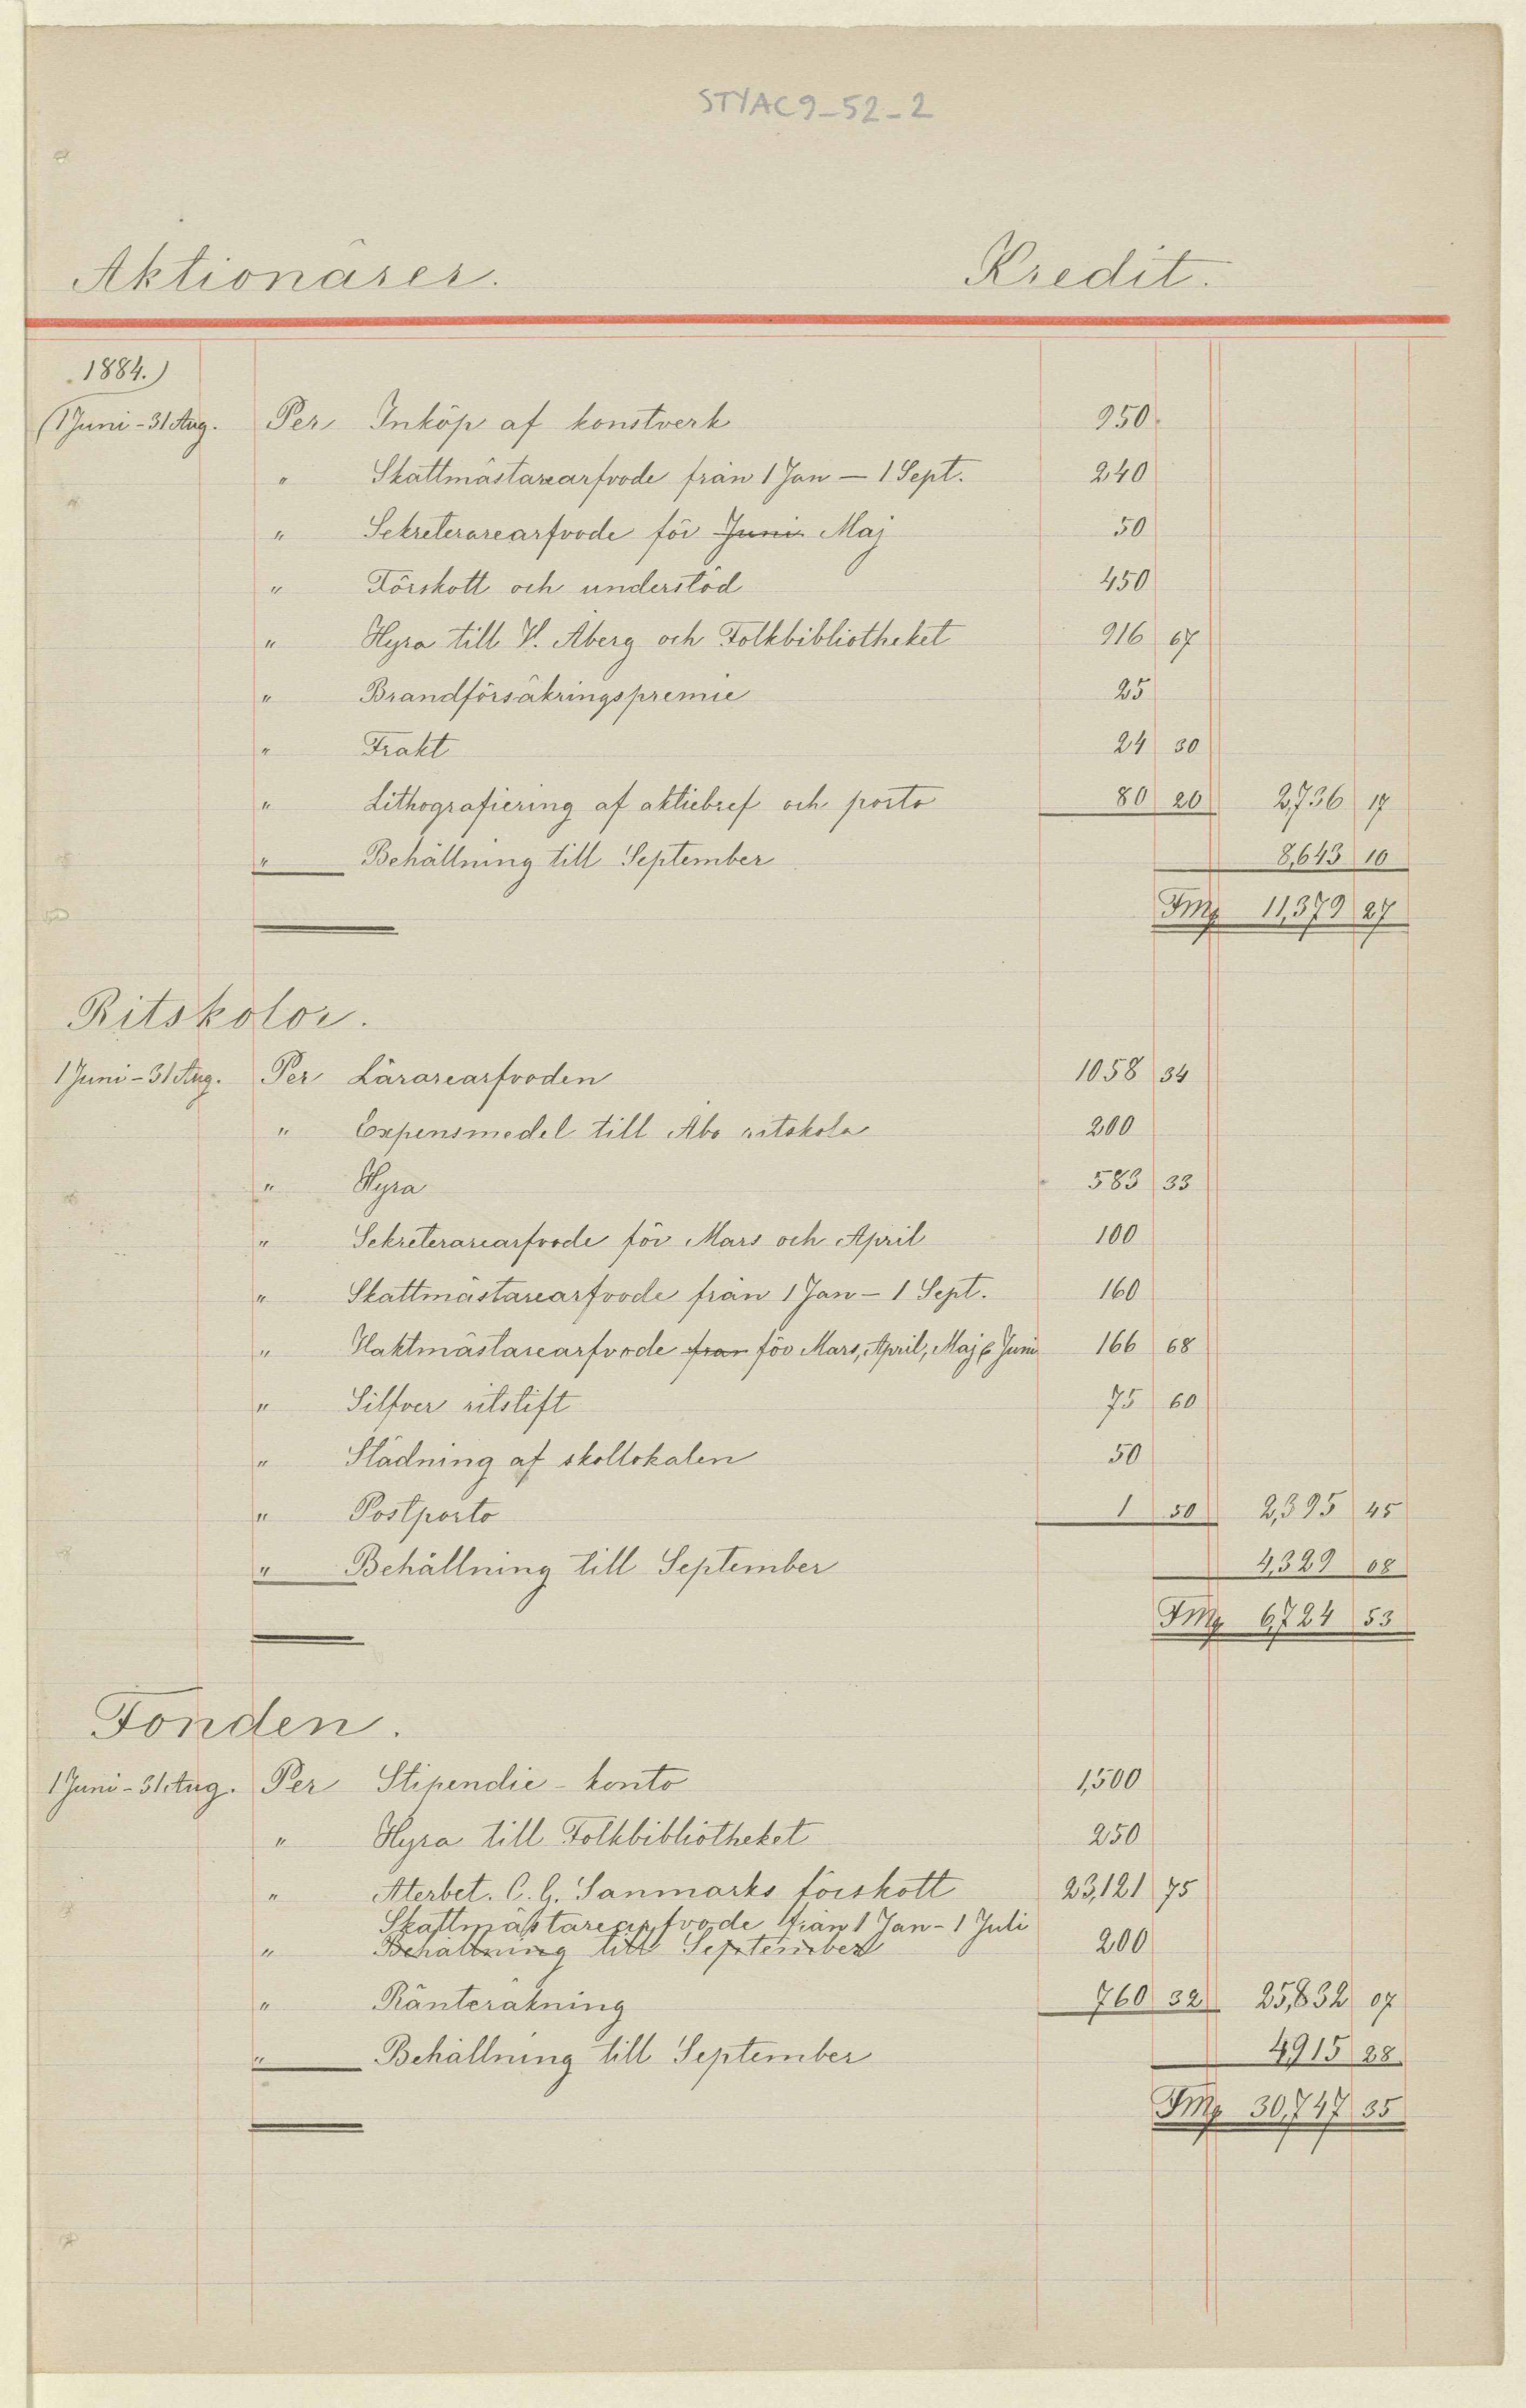 STYAC9-52-2
Aktionärer. Kredit.
1884.)
(1 Juni - 31 Aug. Per Inköp af konstverk 950.
" Skattmästarearfvode från 1 Jan — 1 Sept. 240
" Sekreterarearfvode för Juni Maj 50
" Förskott och understöd 450
" Hyra till V. Åberg och Folkbibliotheket 916 67
" Brandförsäkringspremie 25
" Frakt 24 30
" Lithografiering af aktiebref och porto 80 20 2,736 17
" Behållning till September 8,643 10
Fmg 11,379 27
Ritskolor.
1 Juni - 31 Aug. Per Lärarearfvoden 1058 34
" Expensmedel till Åbo ritskola 200
" Hyra 583 33
" Sekreterarearfvode för Mars och April 100
" Skattmästarearfvode från 1 Jan - 1 Sept. 160
" Vaktmästarearfvode från för Mars, April, Maj & Juni 166 68
" Silfver ritstift 75 60
" Städning af skollokalen 50
" Postporto 1 50 2,395 45
" Behållning till September 4,329 08
Fmg 6,724 53
Fonden.
1 Juni - 31 Aug. Per Stipendie-konto 1,500
" Hyra till Folkbibliotheket 250
" Återbet. C. G. Sanmarks förskott 23,121 75
Skattmästarearfvode från 1 Jan - 1 Juli
" Behållning till September 200
" Ränteräkning 760 32 25,832 07
" Behållning till September 4,915 28
Fmg 30,747 35